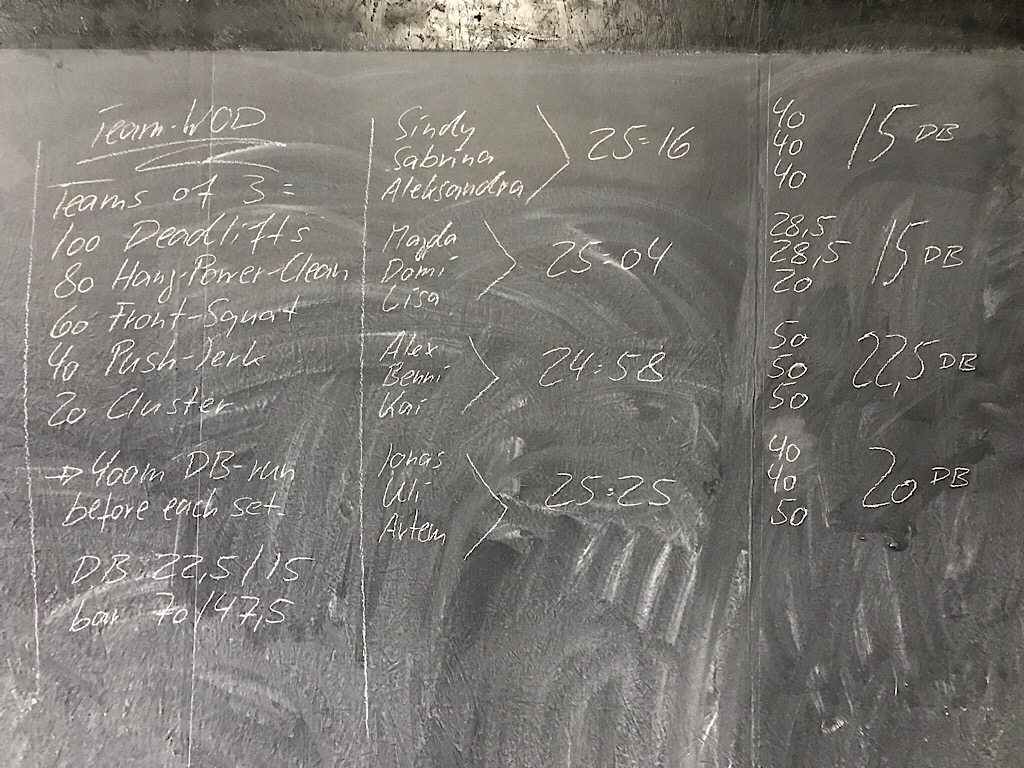 Team-WOD
Teams of 3 =
100 Deadlifts
80 Hang-Power-Clean
60 Front-Squat
40 Push-Jerk
20 Cluster
→ 400m DB-run
before each set.
DB: 22,5/15
bar 70/47,5
Sindy
Sabrina
Aleksandra
25:16
40
40
40
15 DB
Magda
Domi
Lisa
25:04
28,5
28,5
20
15 DB
Alex
Benni
Kai
24:58
50
50
50
22,5 DB
Jonas
Uli
Artem
25:25
40
40
50
20 DB